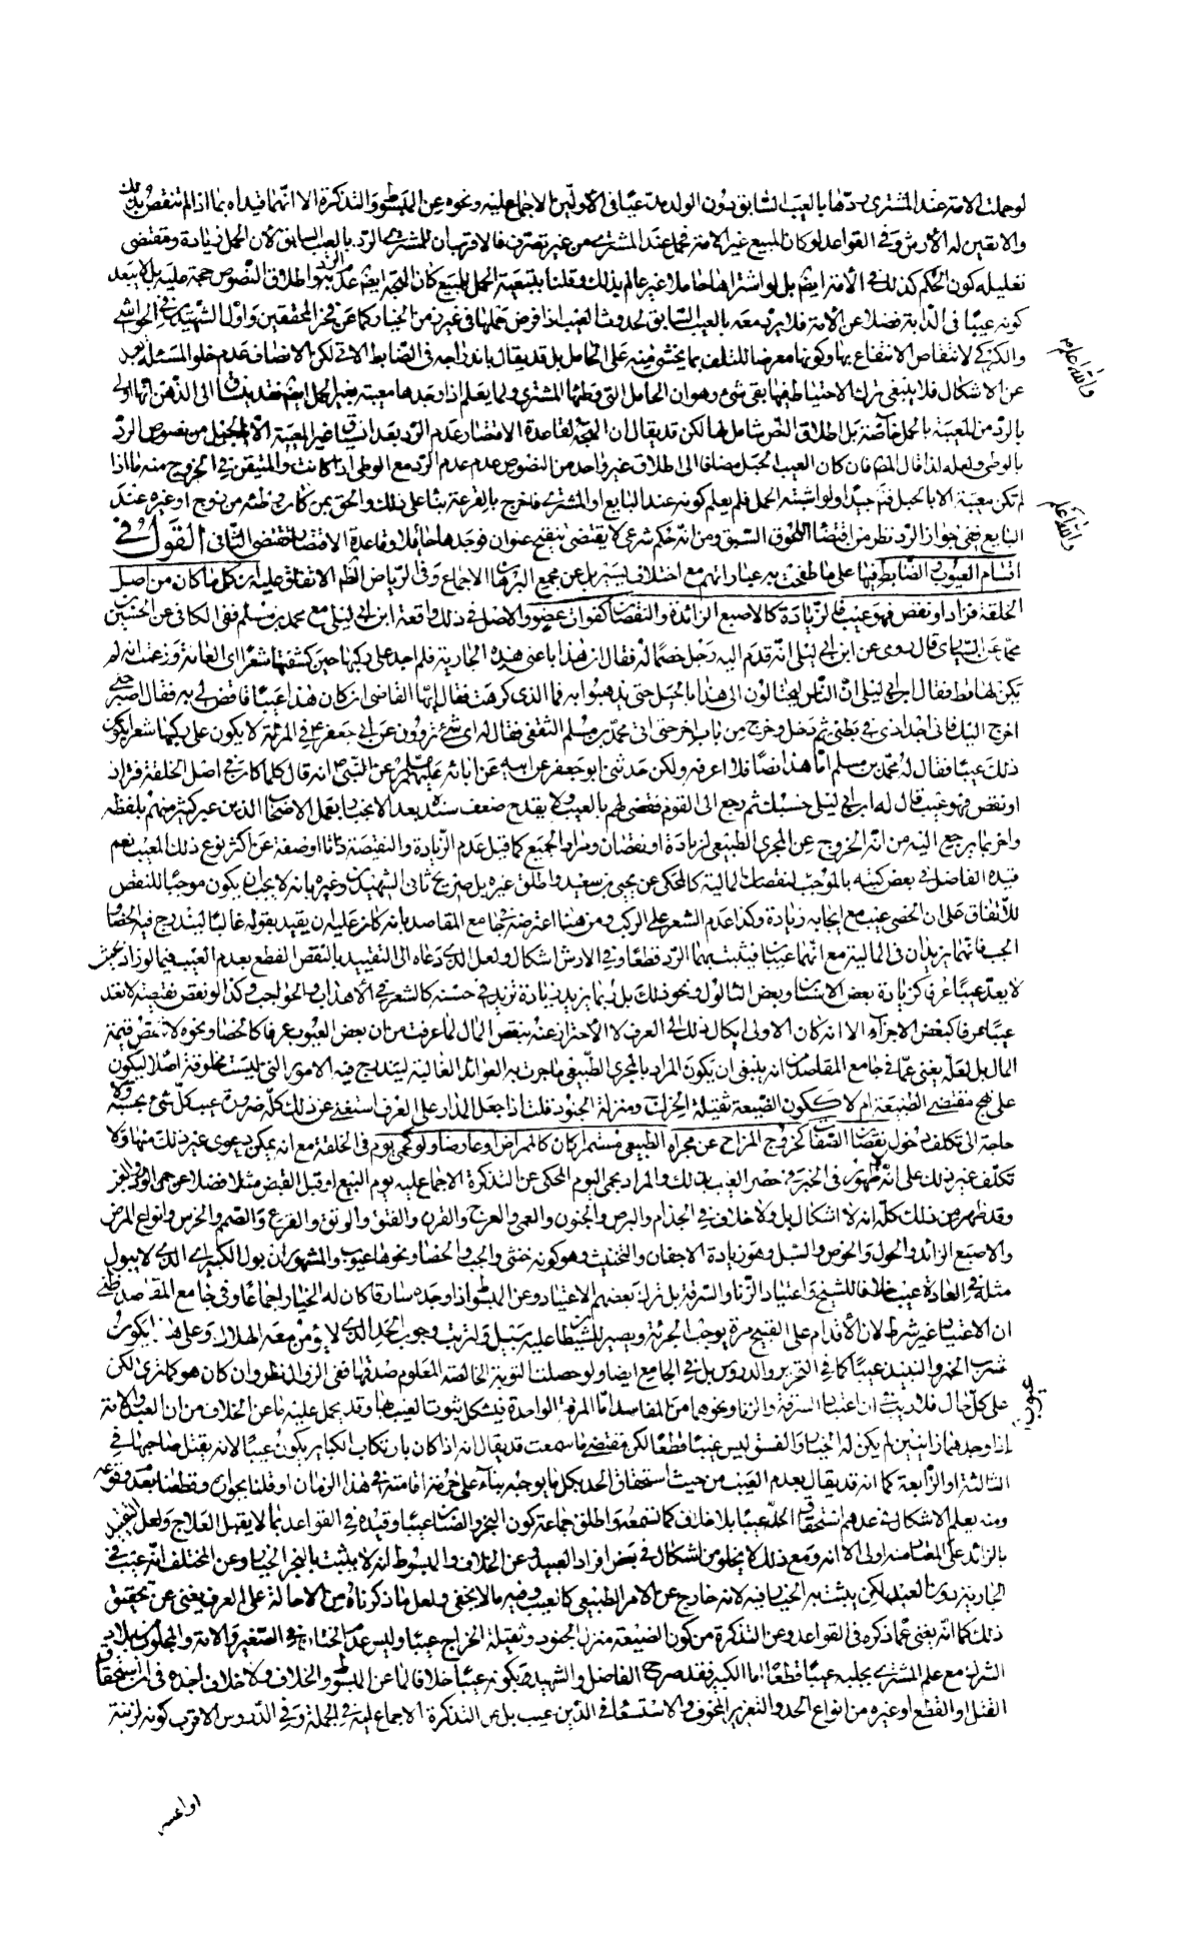 لو حملت الامة عند المشترى ردّها بالعيب السابق دون الولد بلا عيبًا فى الأولين الاجماع عليه ونحوه عن المبسوط والتذكرة الا انّهما قيداه بما اذا لم تنقص بذلك
والا تعين له الأرش وفى القواعد لو كان المبيع غير الامة فحمل عند المشترى من غير تصرف فالاقرب ان للمشترى الردّ بالعيب السابق لأن الحمل زيادة ومقتضى
تعليله كون الحكم كذلك فى الأمة ايضم بل لو اشتراها حاملا غير عالم بذلك وقلنا بتبعية الحمل للمبيع كان المتجه ايضم عدم الرد واطلاق النصوص حجة عليه بل لا يبعد
كونه عيبًا فى الدابة فضلا عن الامة فلا يرد معه بالعيب السابق لحدوث العيب اذا فرض حملها فى غير زمن الخيار كما عن فخر المحققين واول الشهيدين فى الحواشى
والكركى لانتقاص الانتفاع بها وكونها معرضا للتلف بما يخشى منه على الحامل بل قد يقال باندراجه فى الضابط الآتى لكن الانصاف عدم خلو المسئلة بعد
عن الاشكال فلا ينبغى ترك الاحتياط فيها بقى شىء وهو ان الحامل التى وطئها المشترى ولما يعلم اذا وجدها معيبة بغير الحمل ايضم فقد ينساق الى الذهن انها اولى
بالردّ من المعيبة بالحمل خاصّة بل اطلاق النّص شامل لها لكن قد يقال ان المتجه لقاعدة الاقتصار عدم الردّ بعد انسياق غير المعيبة الا بالحبل من نصوص الردّ
بالوطى ولعله لذا قال المصم فان كان العيب الحبل مضافا الى اطلاق غير واحد من النصوص عدم عدم الردّ مع الوطى اذا كانت والمتيقن فى الخروج منه ما اذا
لم تكن معيبة الا بالحبل فتم جيدًا ولو اشتبه الحمل فلم يعلم كونه عند البايع او المشترى فاخرج بالقرعة بناء على ذلك والحق بمن كان وطئه من زوج او غيره عند
البايع ففى جواز الردّ نظر من اقتضاء اللحوق السبق ومن انه حكم شرعى لا يقتضى تنقيح عنوان فوجدها حاملا وقاعدة الاقتصار تقتضى الثانى القول فى
اقسام العيوب والضابط فيها على ما طفحت به عباراتهم مع اختلاف يسير بل عن مجمع البرهان الاجماع وفى الرياض الظم الاتفاق عليه ان كل ما كان من اصل
الخلقة فزاد او نقص فهو عيب فالزيادة كالاصبع الزائدة والنقصان كفوات عضو والاصل فى ذلك واقعة ابن ابى ليلى مع محمد بن مسلم ففى الكافى عن الحسين بن
محمّد عن السيّارى قال روى عن ابن ابى ليلى انّه قدّم اليه رجل خصمًا له فقال ان هذا باعنى هذه الجارية فلم اجد على ركبها حين كشفتها شعرًا اى العانة وزعمت انه لم
يكن لها قط فقال ابن ابى ليلى انّ النّاس ليحتالون الى هذا بالحيل حتى يذهبوا به فما الذى كرهت فقال ايها القاضى ان كان هذا عيبًا فاقض لى به فقال اصبر حتى
اخرج اليك فانى اجد اذى فى بطنى ثم دخل وخرج من باب اخر حتى اتى محمّد بن مسلم الثقفى فقال له اى شىء تروون عن ابى جعفر ع فى المرئة لا يكون على ركبها شعر ايكون
ذلك عيبًا فقال له محمّد بن مسلم امّا هذا نصًا فلا اعرفه ولكن حدثنى ابو جعفر عن ابيه عن ابائه عليهم السلم عن النّبى ص انه قال كلما كان فى اصل الخلقة فزاد
او نقص فهو عيب قال له ابن ابى ليلى حسبك ثم رجع الى القوم فقضى لهم بالعيب ولا يقدح ضعف سنده بعد الانجبار بعمل الاصحاب الذين عبر كثير منهم بلفظه
واخر بما يرجع اليه من انّه الخروج عن المجرى الطبيعى لزيادة او نقصان ومراد الجميع كما قيل عدم الزّيادة والنقيصة ذاتًا او صفة عن اكثر نوع ذلك المعيب نعم
قيده الفاضل فى بعض كتبه بالموجب لنقصان المالية كالمحكى عن يحيى بن سعيد واطلق غيره بل صريح ثانى الشهيدين وغيره بانه لا يجب ان يكون موجبًا للنقص
للاتفاق على ان الخصى عيب مع ايجابه زيادة وكذا عدم الشعر على الركب ومن هنا اعترضه فى جامع المقاصد بانه كان عليه ان يقيد بقوله غالبًا ليندرج فيه الخصا و
الجب فانّهما يزيدان فى المالية مع انّهما عيبان فيثبت بهما الردّ قطعًا وفى الارش اشكال ولعل الذى دعاه الى التقييد بالنقص القطع بعدم العيب فيما لو زاد بحيث
لا يعدّ عيبًا عرفا كزيادة بعض الاسنان وبعض الثالول ونحو ذلك بل ربما يزيد زيادة تزيد فى حسنه كالشعر فى الأهداب والحواجب وكذا لو نقص نقيصة لا تعد
عيبًا عرفا كبعض الاجزاء الا انه كان الاولى ايكال ذلك الى العرف لا الأحتراز عنه بنقص المال لما عرفت من ان بعض العيوب عرفا كالخصا ونحوه لا تنقص قيمة
المال بل لعلّه يغنى عمّا فى جامع المقاصد من انه ينبغى ان يكون المراد بالمجرى الطّبيعى ما جرت به العوائد الغالبة ليندرج فيه الامور التى ليست مخلوقة اصلا ليكون
على نهج مقتضى الطبيعة ام لا ككون الضيعة ثقيلة الخراج ومنزلة الجنود قلت اذا جعل المدار على العرف استغنى عن ذلك كلّه ضرورة عيب كلّ شىء بحسبه ولا
حاجة الى تكلف دخول نقصان الصفات كخروج المزاج عن مجراه الطبيعى مستمرا كان كالممراض او عارضا ولو كحمى يوم فى الخلقة مع انه يمكن دعوى غير ذلك منها ولا
تكلّف غير ذلك على انّه لا ظهور فى الخبر فى حصر العيب بذلك والمراد بحمى اليوم المحكى عن التذكرة الاجماع عليه يوم البيع او قبل القبض مثلا فضلا عن حمى الورد والغب
وقد ظهر من ذلك كلّه انه لا اشكال بل ولا خلاف فى الجذام والبرص والجنون والعمى والعرج والقرن والفتق والرتق والقرع والصّمم والخرس وانواع المرض
والاصبع الزائد والحول والخوص والسّبل وهو زيادة الاجفان والتخنيث وهو كونه خنثى والجب والخصا ونحوها عيوب والمشهور ان بول الكبير الذى لا يبول
مثله فى العادة عيب خلافا للشيخ واعتياد الزّنا والسّرقة بل ترك بعضهم الاعتياد وعن المبسوط اذا وجده سارقا كان له الخيار اجماعًا وفى جامع المقاصد ظنى
ان الاعتياد غير شرط لان الأقدام على القبيح مرة يوجب الجرئة ويصير للشيطان عليه سبيل ولترتب وجوب الحدّ الذى لا يؤمن معه الهلاك وعلى هذا يكون
شرب الخمر والنبيذ عيبًا كما فى التحرير والدروس بل فى الجامع ايضا ولو حصلت التوبة الخالصة المعلوم صدقها ففى الزوال نظر وان كان هو كما ترى لكن
على كلّ حال فلا ريب فى ان اعتياد السرقة والزنا ونحوهما من المفاسد امّا المرة الواحدة فيشكل ثبوت العيب بها وقد يحمل عليه ما عن الخلاف من ان العبد والامة
اذا وجدهما زانيين لم يكن له الخيار والفسق ليس عيبًا قطعًا لكن مقتضى ما سمعت قد يقال انه اذا كان بارتكاب الكباير يكون عيبًا لانه يقتل صاحبها فى
الثالثة او الرّابعة كما انه قد يقال بعدم العيب من حيث استحقاق الحد بكل ما يوجبه بناء على حرمة اقامته فى هذا الزمان او قلنا بجوازه وقطعنا بعدم وقوعه
ومنه يعلم الاشكال فى عدهم استحقاق الحدّ عيبًا بلا خلاف كما تسمعه واطلق جماعة كون البخر والصنان عيبًا وقيده فى القواعد بما لا يقبل العلاج ولعل التعبير
بالزائد على المعتاد منه اولى الا انه ومع ذلك لا يخلو من اشكال فى بعض افراد العبيد وعن الخلاف والمبسوط انه لا يثبت بالبخر الخيار وعن المختلف انّه عيب فى
الجارية دون العبد لكن يثبت به الخيار فيه لانه خارج عن الامر الطبيعى كالعيب وفيه ما لا يخفى ولعل ما ذكرناه من الاحالة على العرف يغنى عن تحقيق
ذلك كما انّه يغنى عمّا ذكره فى القواعد وعن التذكرة من كون الضيعة منزل الجنود وثقيلة الخراج عيبًا وليس عدم الختان فى الصّغير والامة والمجلوب من بلاد
الشرك مع علم المشترى بجلبه عيبًا قطعًا امّا الكبير فقد صرح الفاضل والشهيد بكونه عيبًا خلافا لما عن المبسوط والخلاف ولا خلاف اجده فى ان استحقاق
القتل او القطع او غيره من انواع الحد والتعزير المخوف والاستسعاء فى الدّين عيب بل عن التذكرة الاجماع عليه فى الجملة وفى الدّروس الاقرب كونه لزنية
والله اعلم
والله اعلم
عيوب